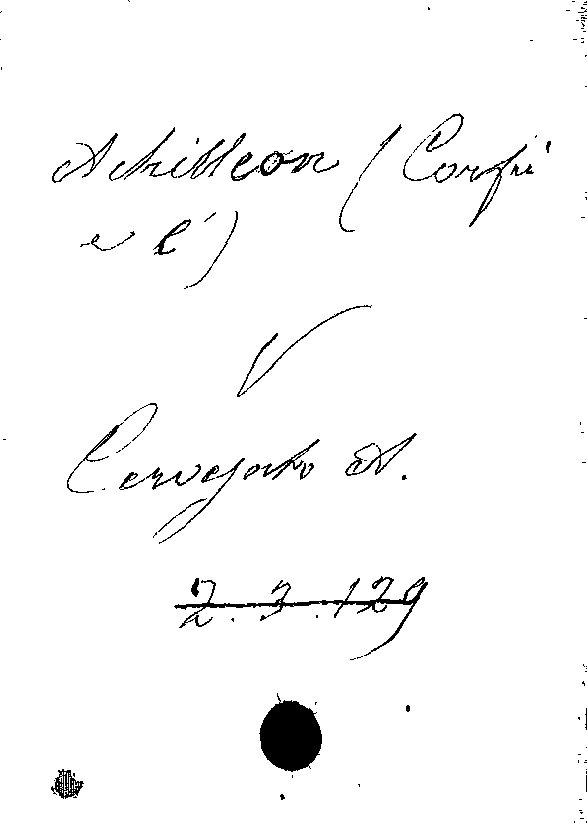 Achilleon (Corfù
e l')
V
Cervesato A.
2.3.129